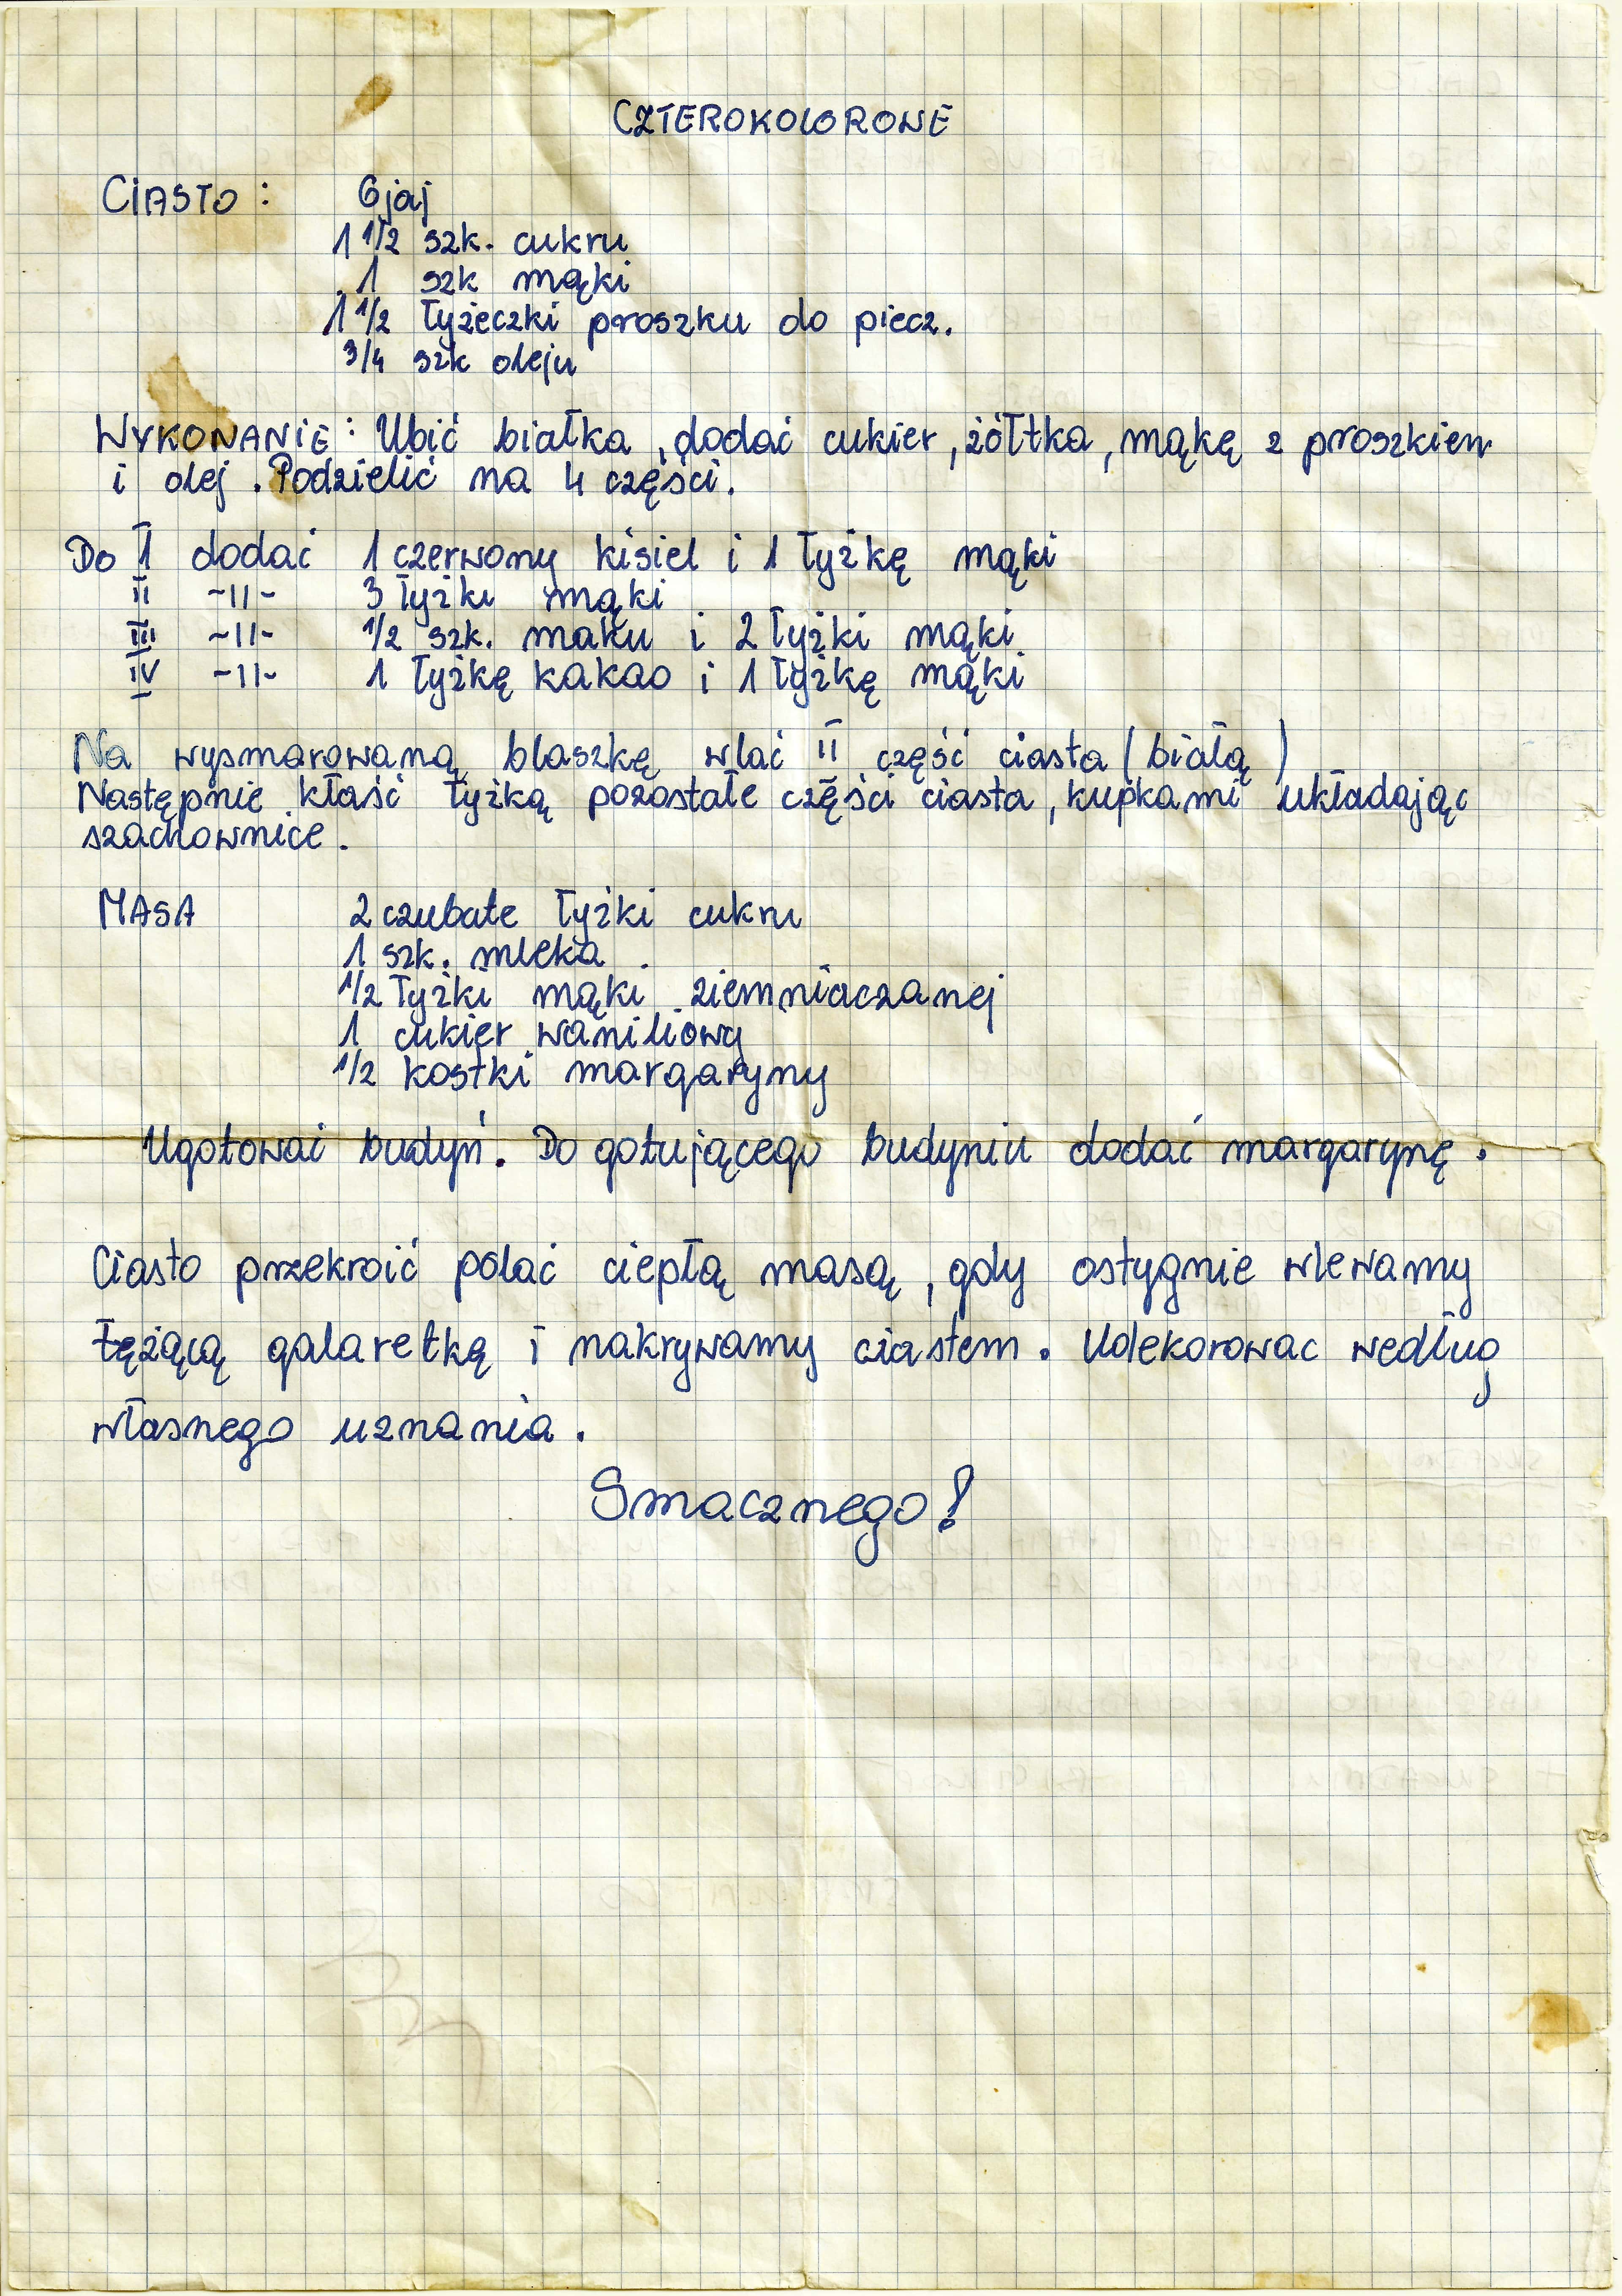 CZTEROKOLOROWE
CIASTO : 6 jaj
1 1/2 szk. cukru
1 szk mąki
1 1/2 łyżeczki proszku do piecz.
3/4 szk oleju
WYKONANIE : Ubić białka , dodać cukier , żółtka , mąkę z proszkiem
i olej . Podzielić na 4 części .
Do I dodać 1 czerwony kisiel i 1 łyżkę mąki
II ~11~ 3 łyżki mąki
III ~11~ 1/2 szk. maku i 2 łyżki mąki
IV ~11~ 1 łyżkę kakao i 1 łyżkę mąki
Na wysmarowaną blaszkę wlać II część ciasta ( białą )
Następnie kłaść łyżką pozostałe części ciasta , kupkami układając
szachownice .
MASA 2 czubate łyżki cukru
1 szk. mleka
1/2 łyżki mąki ziemniaczanej
1 cukier waniliowy
1/2 kostki margaryny
Ugotować budyń . Do gotującego budyniu dodać margarynę .
Ciasto przekroić polać ciepłą masą , gdy ostygnie wlewamy
tężącą galaretkę i nakrywamy ciastem . Udekorowac według
własnego uznania .
Smacznego !